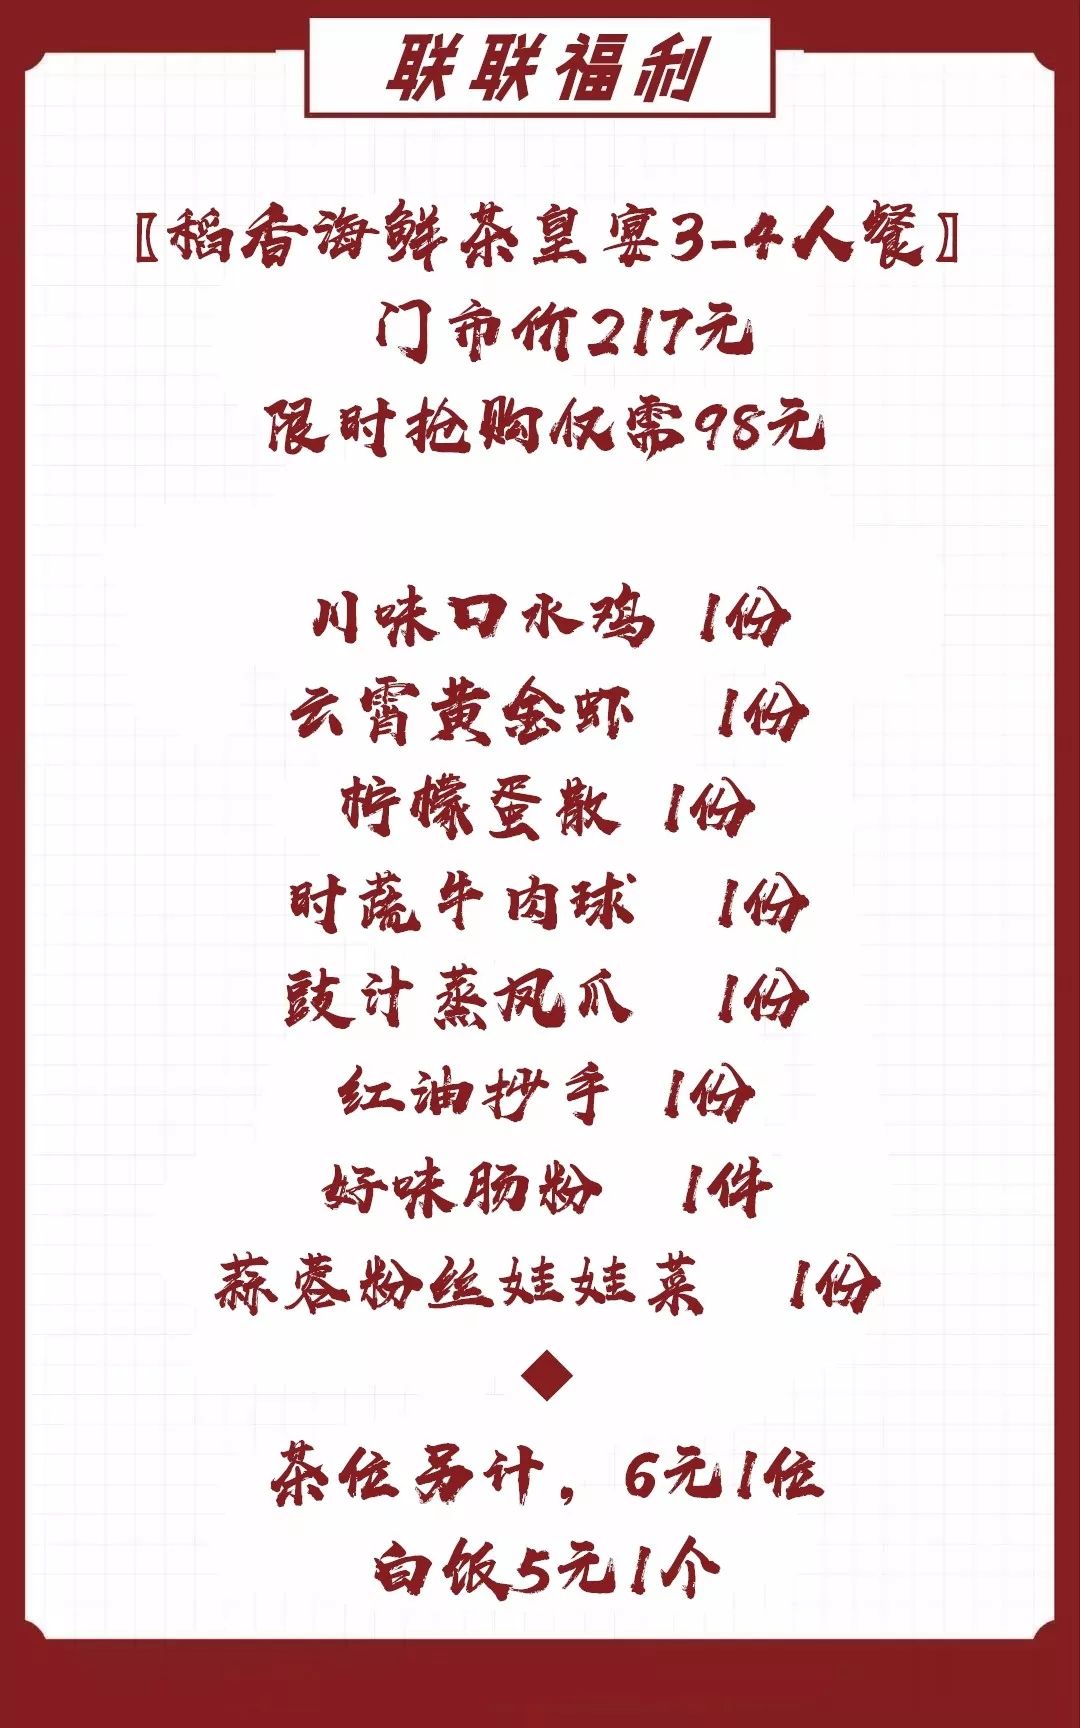 联联福利
〖稻香海鲜茶皇宴3-4人餐〗
门市价217元
限时抢购仅需98元
川味口水鸡 1份
云霄黄金虾 1份
柠檬蛋散 1份
时蔬牛肉球 1份
豉汁蒸凤爪 1份
红油抄手 1份
好味肠粉 1件
蒜蓉粉丝娃娃菜 1份
茶位另计，6元1位
白饭5元1个